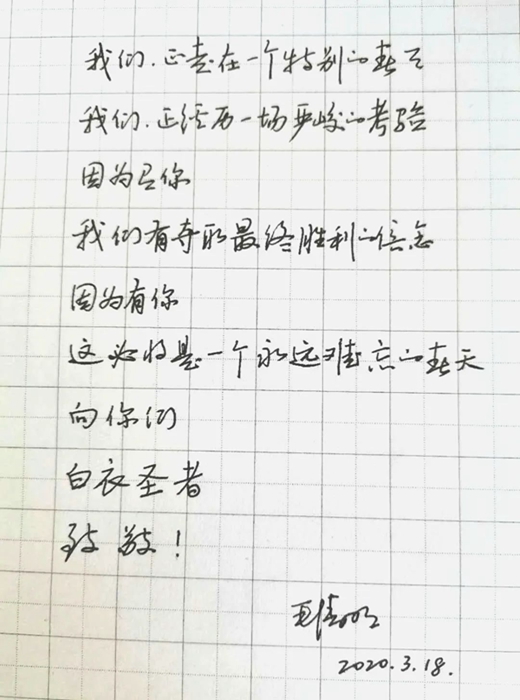 我们.正走在一个特别的春天
我们.正经历一场严峻的考验
因为有你
我们有夺取最终胜利的信念
因为有你
这必将是一个永远难忘的春天
向你们
白衣圣者
致敬！
2020.3.18.